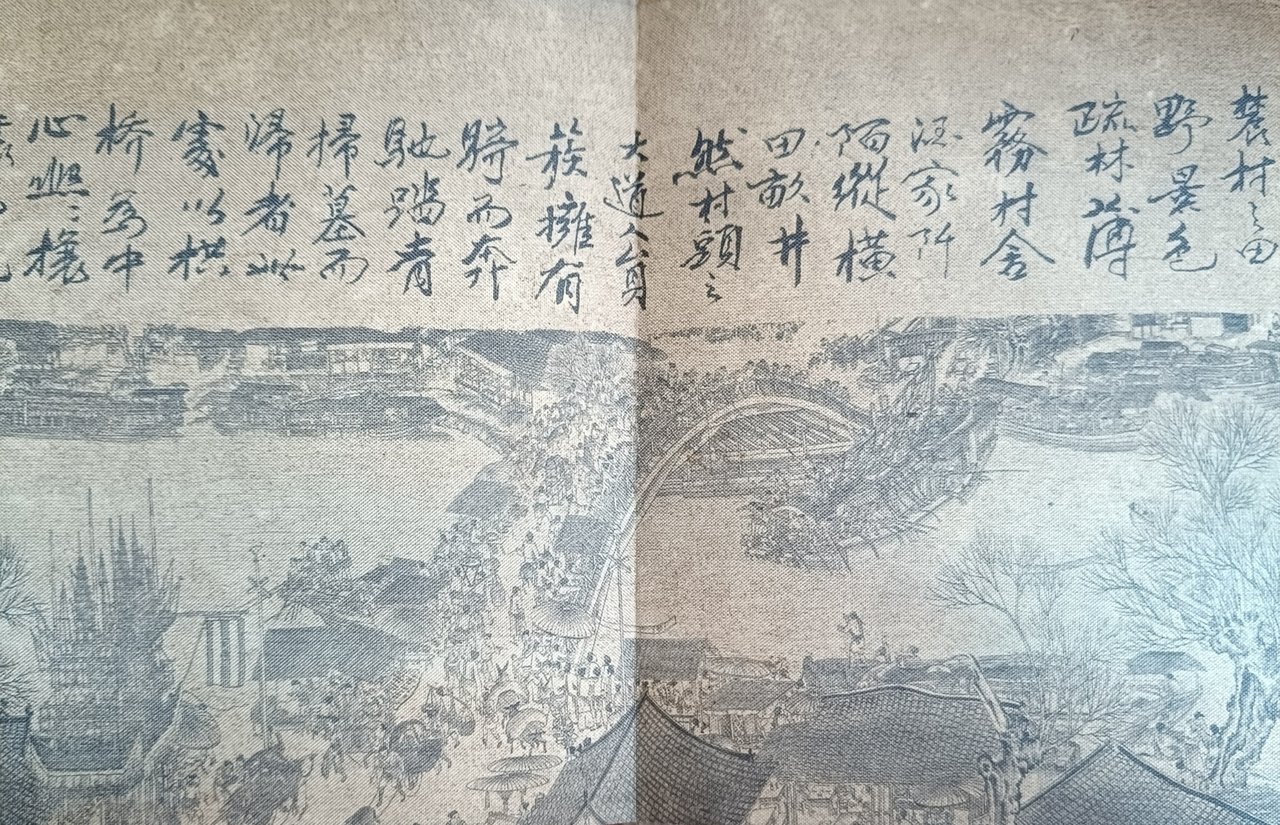 農村之田
野景色
疏林薄
霧村舍
酒家阡
陌縱橫
田畝井
然村頭之
大道人身
簇擁有
騎而奔
馳踏青
掃墓而
歸者
以拱
橋為中
心熙